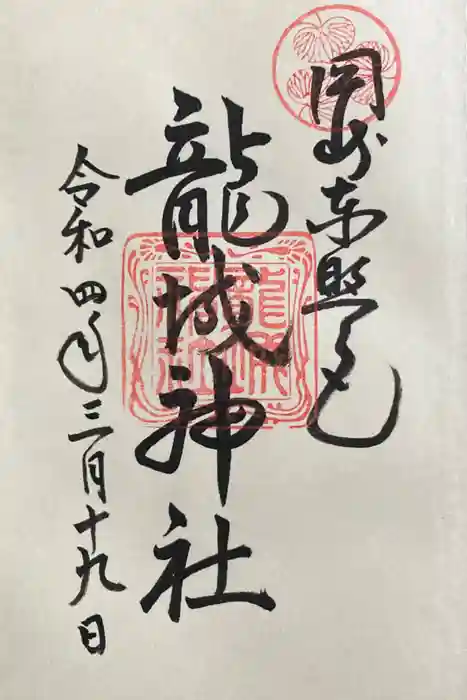 岡崎東照宮
龍城神社
令和四年三月十九日
龍城神社